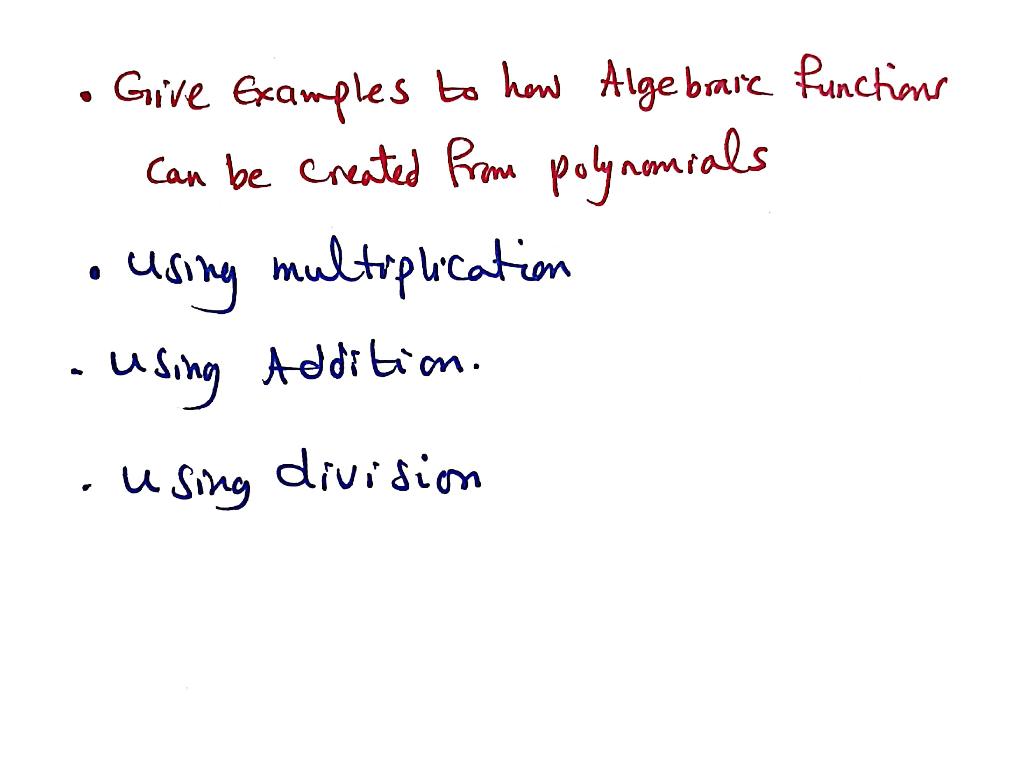 • Give Examples to how Algebraic functions
can be created from polynomials
• Using multiplication
- Using Addition.
- Using division